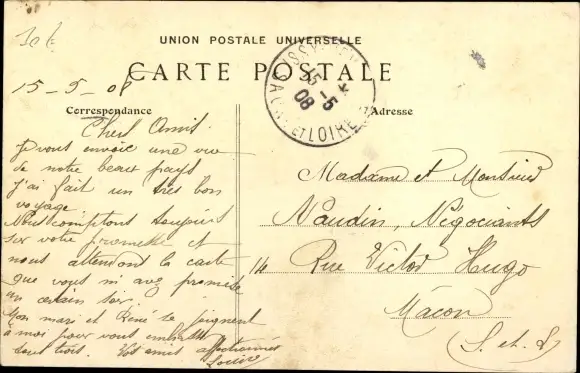 UNION POSTALE UNIVERSELLE
CARTE POSTALE
15-5-08
15-5
08
SAÔNE ET LOIRE
Correspondance
Adresse
Chers Amis.
Je vous envoie une vue
de notre beau pays
j'ai fait un très bon
voyage
Nous comptons toujours
sur votre promesse et
nous attendont la carte
que vous m'avez promise
un certain soir.
Mon mari et René se joignent
à moi pour vous embrasser
tous trois. Vos amis affectionnés
Louise
Madame et Monsieur
Naudin, Négociants
14 Rue Victor Hugo
Mâcon
(S. et. L)